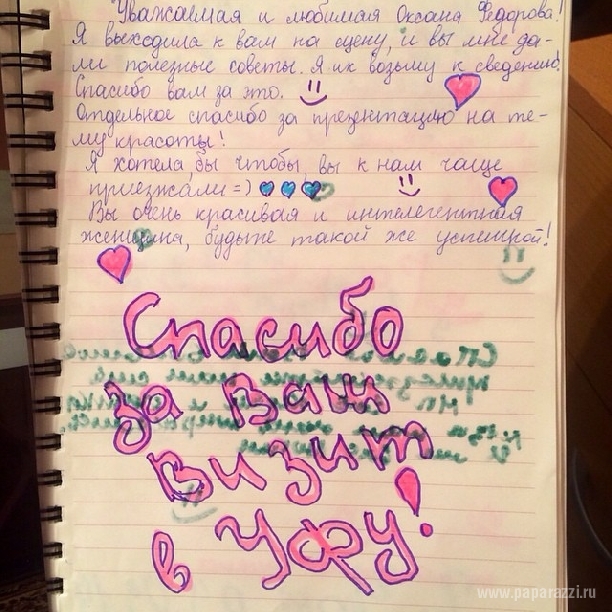 Уважаемая и любимая Оксана Федорова!
Я выходила к вам на сцену, и вы мне да-
ли полезные советы. Я их возьму к сведению!
Спасибо вам за это.
Отдельное спасибо за презентацию на те-
му красоты!
Я хотела бы чтобы вы к нам чаще
приезжали =)
Вы очень красивая и интелегентная
женщина, будьте такой же успешной!
Спасибо
за Ваш
визит
в Уфу!
www.paparazzi.ru